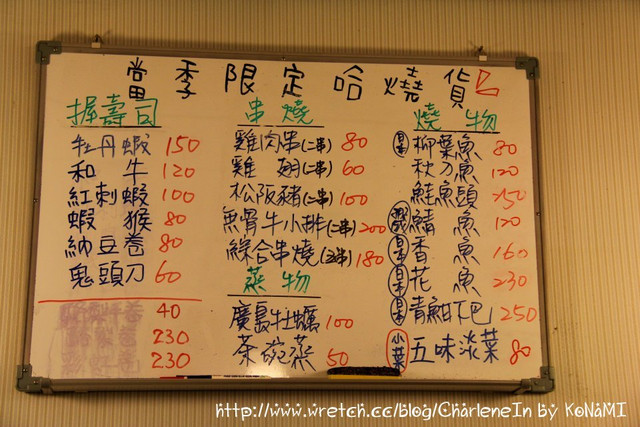 當季限定哈燒貨
握壽司
牡丹蝦 150
和牛 120
紅刺蝦 100
蝦猴 80
納豆卷 80
鬼頭刀 60
40
230
230
串燒
雞肉串(二串) 80
雞翅(二串) 60
松阪豬(二串) 100
魚骨牛小排(二串) 200
綜合串燒(五串) 180
蒸物
廣島牡蠣 100
茶碗蒸 50
燒物
日本 柳葉魚 80
秋刀魚 120
鮭魚頭 250
挪威 鯖魚 120
日本 香魚 160
日本 花魚 230
日本 青魽下巴 250
小菜 五味淡菜 80
http://www.wretch.cc/blog/CharleneIn by KoNaMI